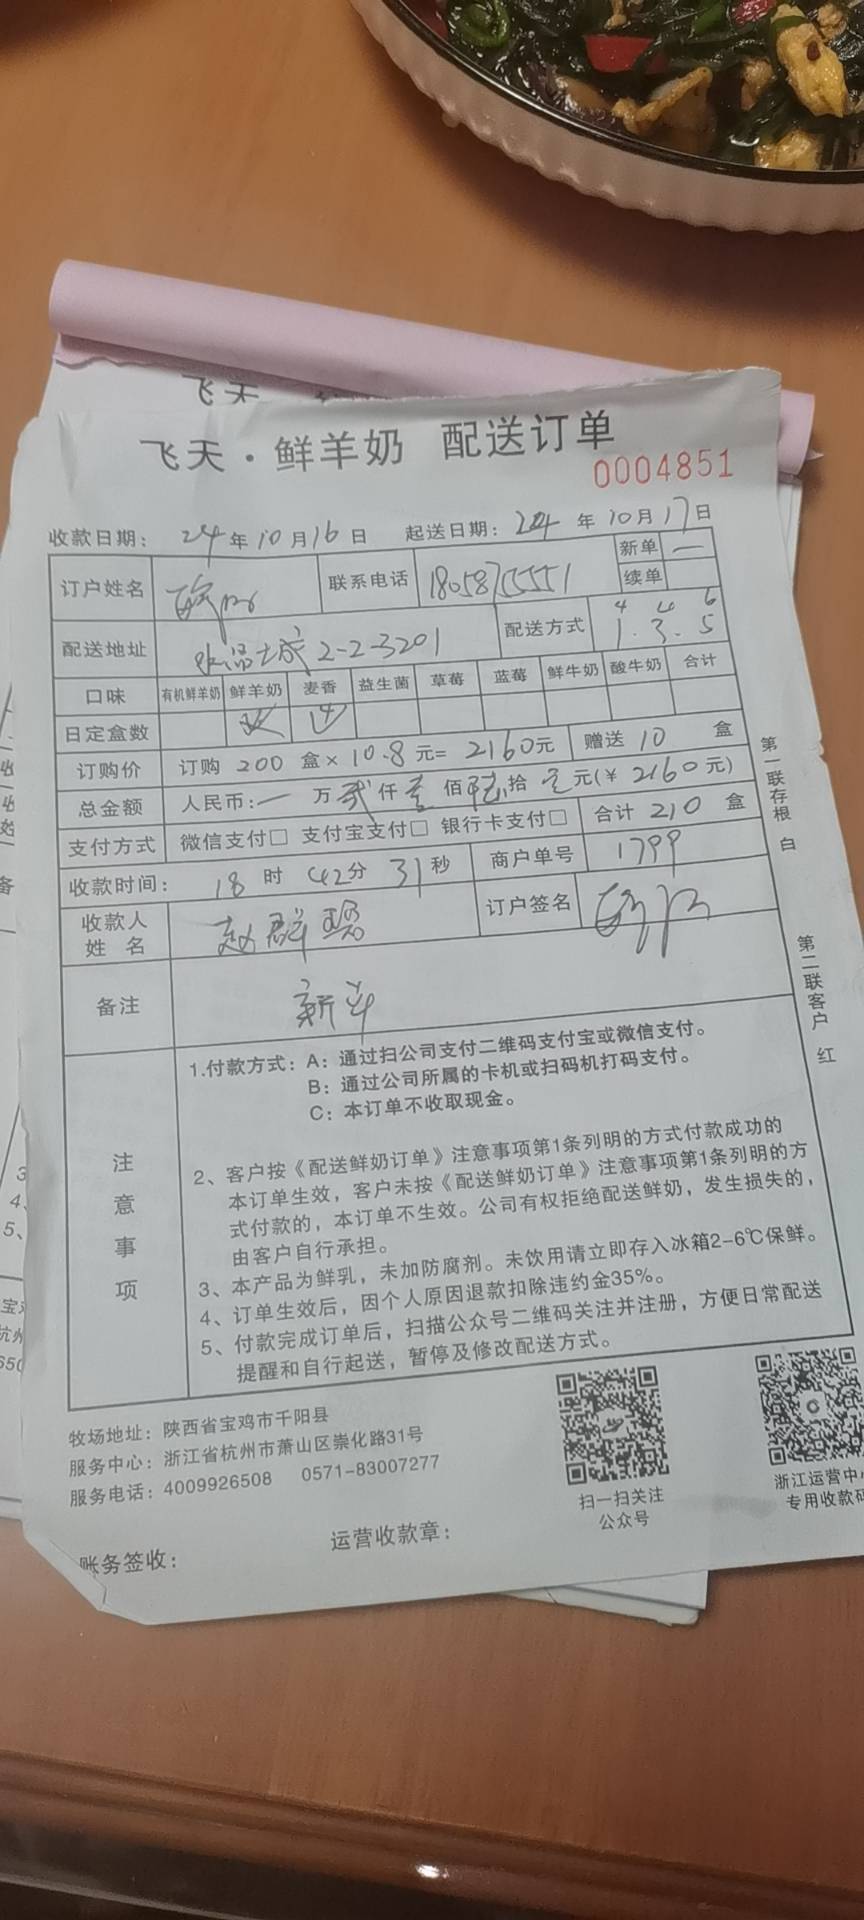 飞天·鲜羊奶 配送订单
0004851
收款日期: 24年10月16日 起送日期: 年10月17日
订户姓名 联系电话 18058755551 新单 一
续单
配送地址 2-2-3201 配送方式 1.3.5
口味 有机鲜羊奶 鲜羊奶 麦香 益生菌 草莓 蓝莓 鲜牛奶 酸牛奶 合计
日定盒数
订购价 订购 200 盒×10.8元=2160元 赠送 10 盒
总金额 人民币:一万贰仟壹佰陆拾元(¥2160元)
支付方式 微信支付□ 支付宝支付□ 银行卡支付□ 合计 210 盒
收款时间: 18时42分31秒 商户单号 1799
收款人姓名 赵群 订户签名
备注
注意事项
1.付款方式:A:通过扫公司支付二维码支付宝或微信支付。
B:通过公司所属的卡机或扫码机打码支付。
C:本订单不收取现金。
2、客户按《配送鲜奶订单》注意事项第1条列明的方式付款成功的
本订单生效,客户未按《配送鲜奶订单》注意事项第1条列明的方
式付款的,本订单不生效。公司有权拒绝配送鲜奶,发生损失的,
由客户自行承担。
3、本产品为鲜乳,未加防腐剂。未饮用请立即存入冰箱2-6℃保鲜。
4、订单生效后,因个人原因退款扣除违约金35%。
5、付款完成订单后,扫描公众号二维码关注并注册,方便日常配送
提醒和自行起送,暂停及修改配送方式。
第一联存根 白
第二联客户 红
牧场地址:陕西省宝鸡市千阳县
服务中心:浙江省杭州市萧山区崇化路31号
服务电话:4009926508 0571-83007277
扫一扫关注
公众号
浙江运营中心
专用收款码
账务签收:
运营收款章: